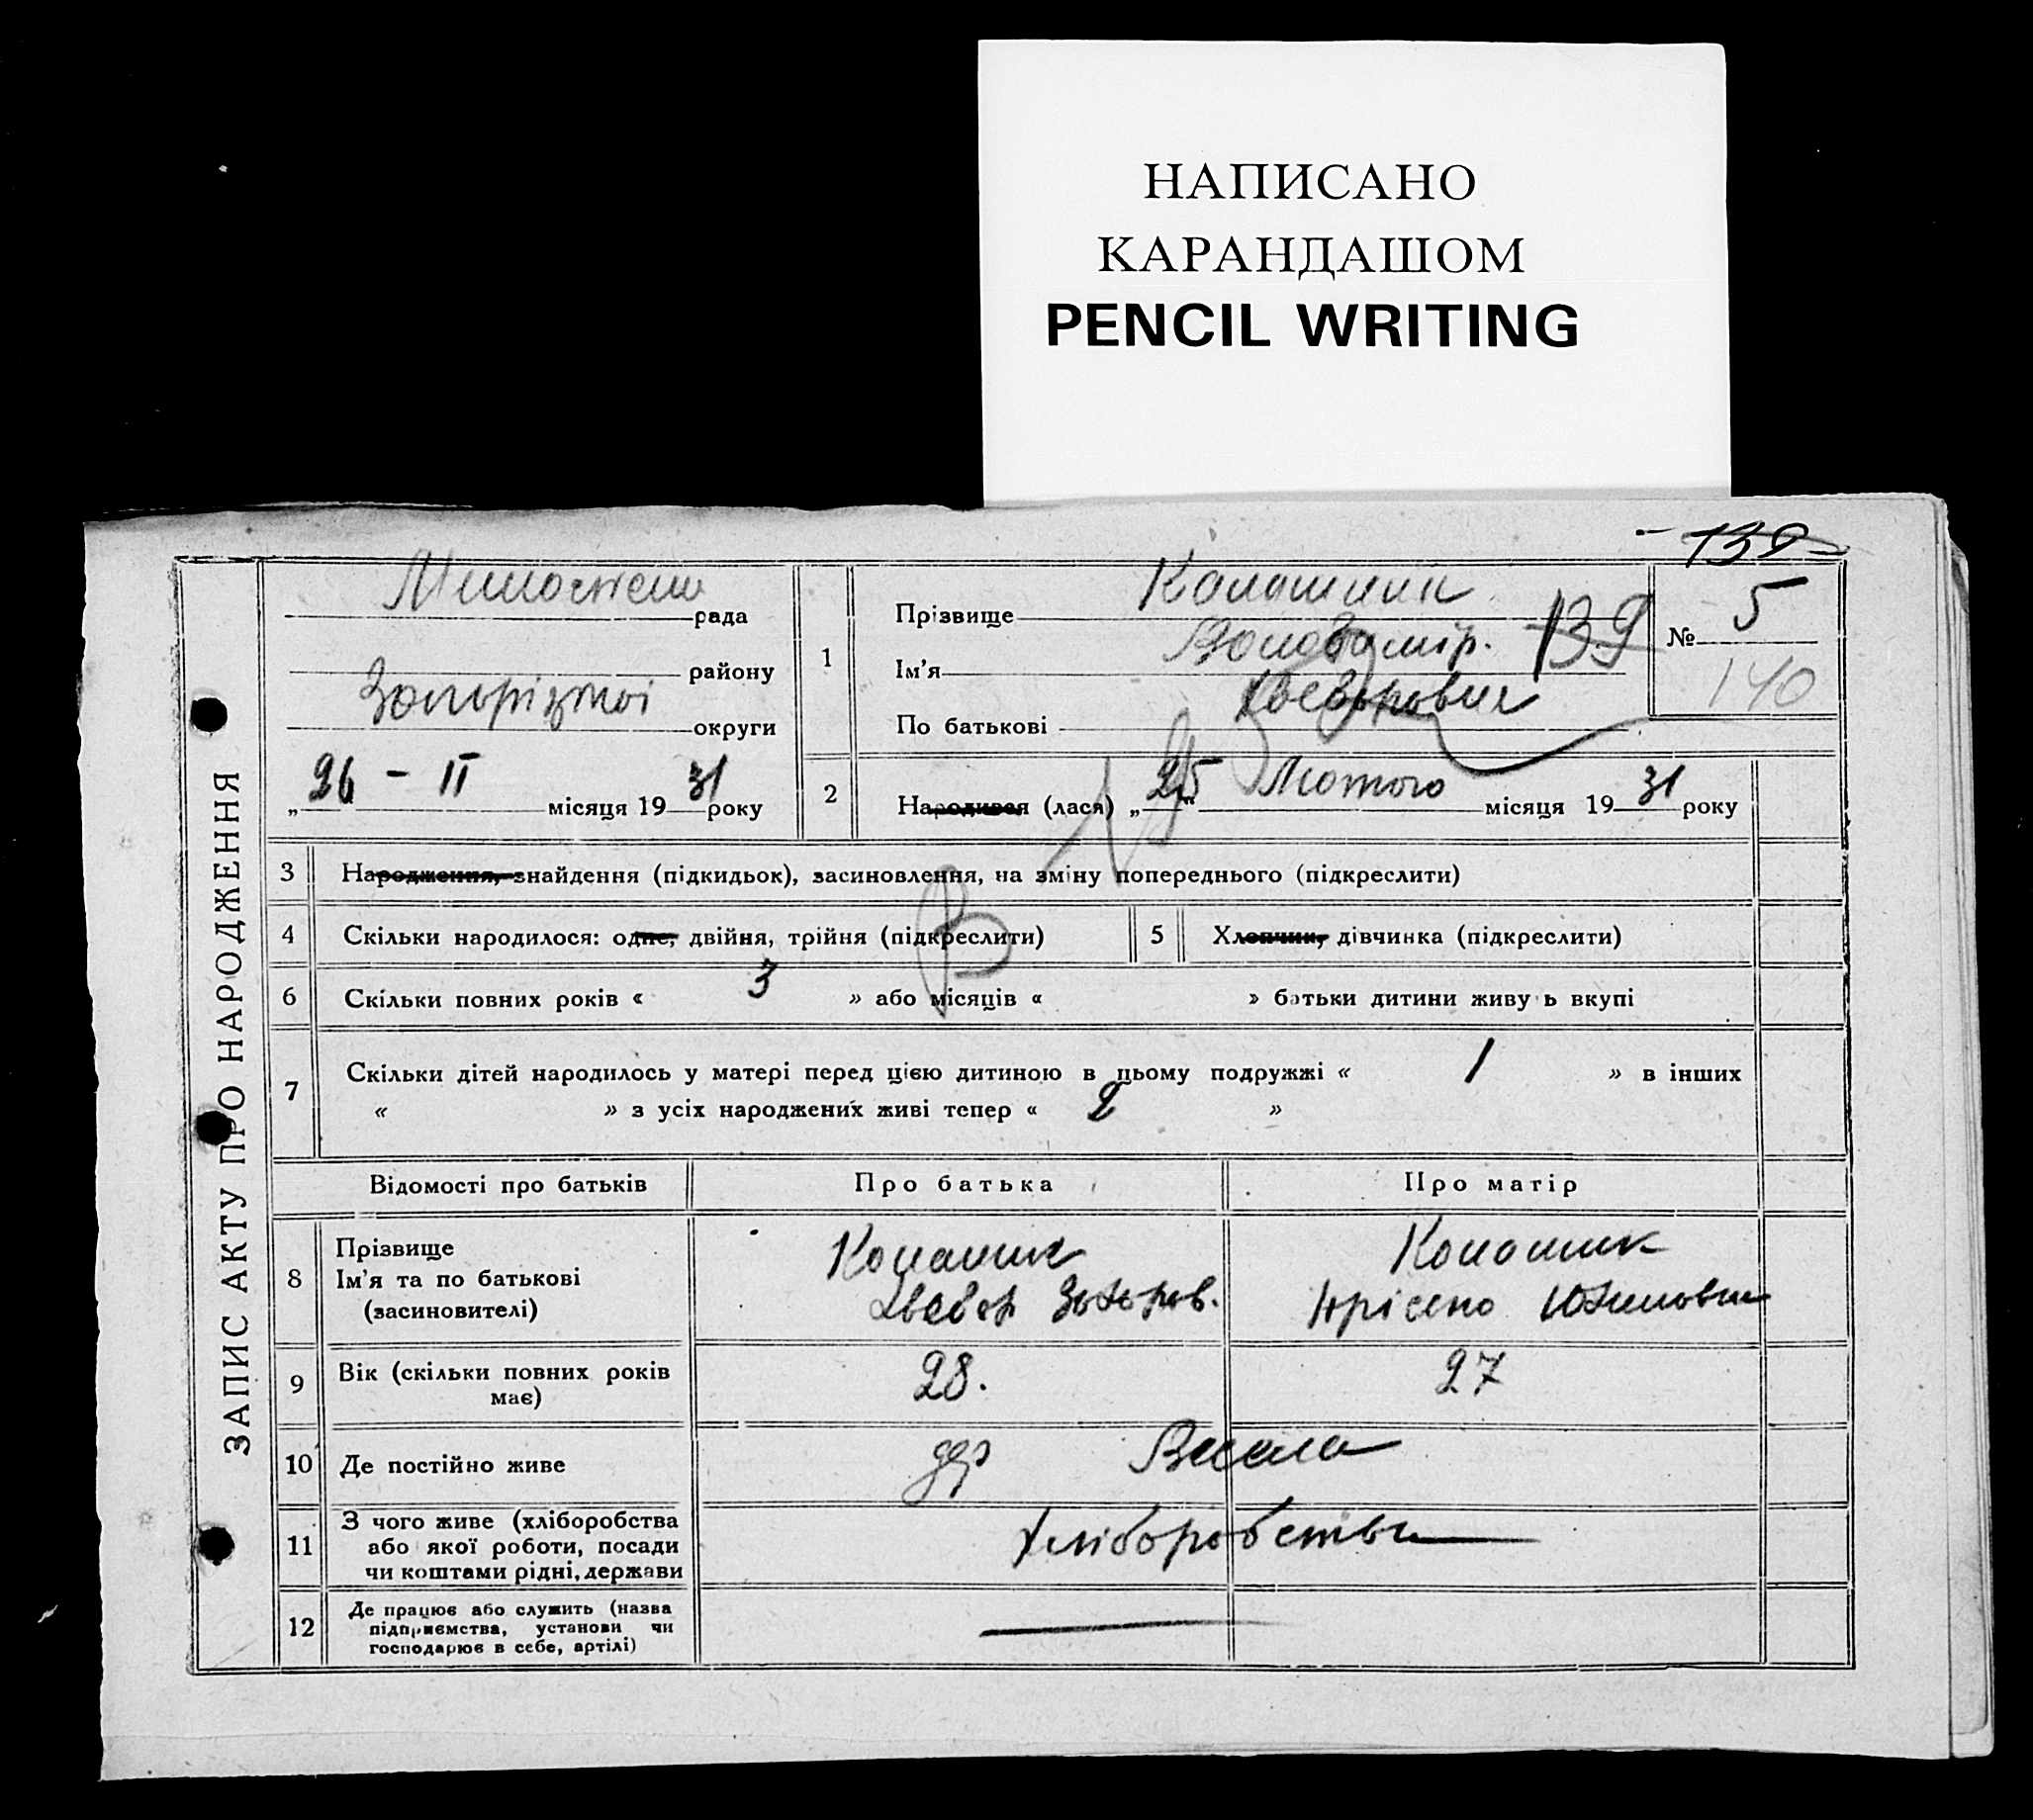 НАПИСАНО
КАРАНДАШОМ
PENCIL WRITING
139
ЗАПИС АКТУ ПРО НАРОДЖЕННЯ
рада
району
округи
„26 - II місяця 1931 року
1
Прізвище
Ім'я Володимір. 139
По батькові
№ 5
140
2
Народився (лася) „25" Лютого місяця 1931 року
3 Народження, знайдення (підкидьок), засиновлення, на зміну попереднього (підкреслити)
4 Скільки народилося: одне, двійня, трійня (підкреслити)
5 Хлопчик, дівчинка (підкреслити)
В
6 Скільки повних років « 3 » або місяців « » батьки дитини живу ь вкупі
7 Скільки дітей народилось у матері перед цією дитиною в цьому подружжі « 1 » в інших
« » з усіх народжених живі тепер « 2 »
Відомості про батьків Про батька Про матір
8 Прізвище
Ім'я та по батькові
(засиновителі)
9 Вік (скільки повних років
має)
28. 27
10 Де постійно живе
Весела
11 З чого живе (хліборобства
або якої роботи, посади
чи коштами рідні, держави
Хліборобства
12 Де працює або служить (назва
підприємства, установи чи
господарює в себе, артілі)